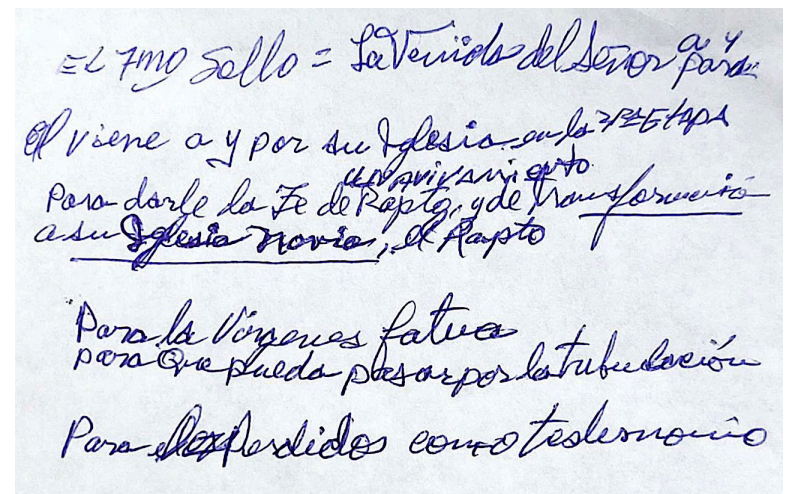 EL 7mo Sello = La Venida del Señor a y para
El viene a y por su Iglesia en la 3RA Etapa
un avivamiento
para darle la Fe de Rapto, y de transformació
a su Iglesia novia, el Rapto
Para la Vírgenes fatua
para que pueda pasar por la tribulación
Para los Perdidos como testimonio